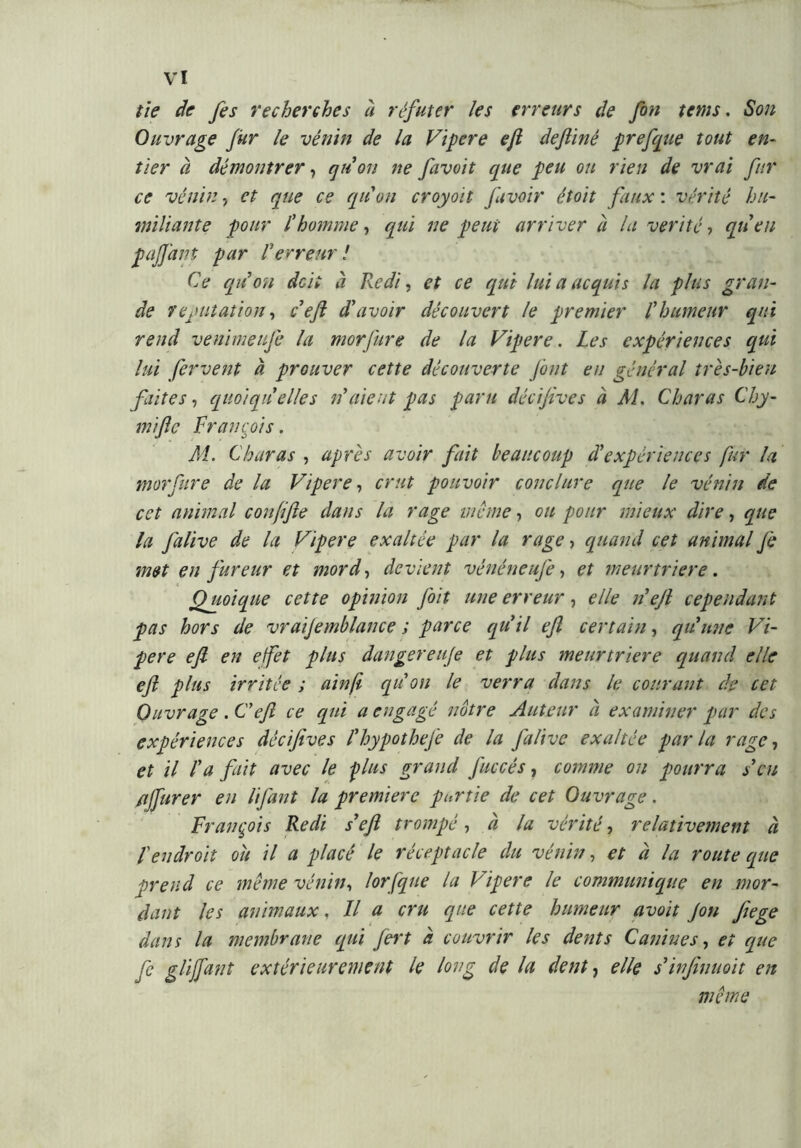 VI
tie de ſes recherches à réfuter les erreurs de ſon tems. Son
Ouvrage ſur le vénin de la Vipere eſt deſtiné preſque tout en-
tier à démontrer, qu'on ne ſavoit que peu ou rien de vrai ſur
ce vénin, et que ce qu'on croyoit ſavoir étoit faux: vérité hu-
miliante pour l'homme, qui ne peut arriver à la verité, qu'en
paſſant par l'erreur!
Ce qu'on doit à Redi, et ce qui lui a acquis la plus gran-
de reputation, c'eſt d'avoir découvert le premier l'humeur qui
rend venimeuſe la morſure de la Vipere. Les expériences qui
lui ſervent à prouver cette découverte ſont en général très-bien
faites, quoiqu'elles n'aient pas paru déciſives à M. Charas Chy-
miſte François.
M. Charas, après avoir fait beaucoup d'expériences ſur la
morſure de la Vipere, crut pouvoir conclure que le vénin de
cet animal conſiſte dans la rage même, ou pour mieux dire, que
la ſalive de la Vipere exaltée par la rage, quand cet animal ſe
met en fureur et mord, devient vénéneuſe, et meurtriere.
Quoique cette opinion ſoit une erreur, elle n'eſt cependant
pas hors de vraiſemblance; parce qu'il eſt certain, qu'une Vi-
pere eſt en effet plus dangereuſe et plus meurtriere quand elle
eſt plus irritée; ainſi qu'on le verra dans le courant de cet
Ouvrage. C'eſt ce qui a engagé nôtre Auteur à examiner par des
expériences déciſives l'hypotheſe de la ſalive exaltée par la rage,
et il l'a fait avec le plus grand ſuccés, comme on pourra s'en
aſſurer en liſant la premiere partie de cet Ouvrage.
François Redi s'eſt trompé, à la vérité, relativement à
l'endroit où il a placé le réceptacle du vénin, et à la route que
prend ce même vénin, lorſque la Vipere le communique en mor-
dant les animaux. Il a cru que cette humeur avoit ſon ſiege
dans la membrane qui ſert à couvrir les dents Canines, et que
ſe gliſſant extérieurement le long de la dent, elle s'inſinuoit en
même